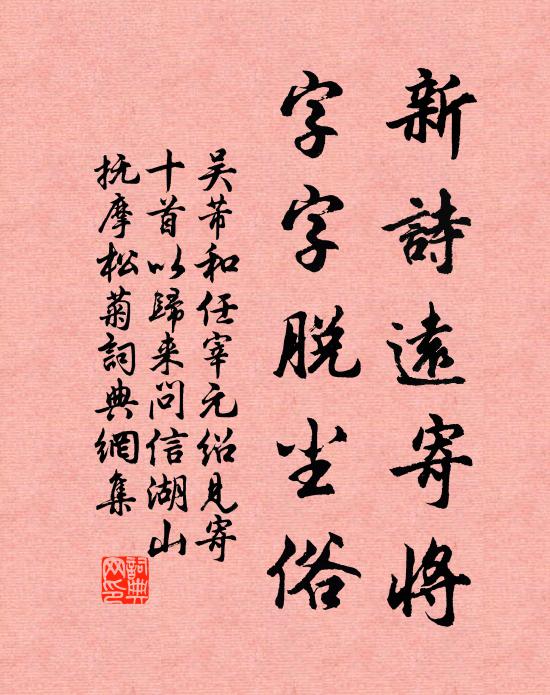 新詩遠寄將
字字脱尘俗
吴芾和任宰元绍見寄
十首以歸来问信湖山
抚摩松菊詞典網集
詞典网印